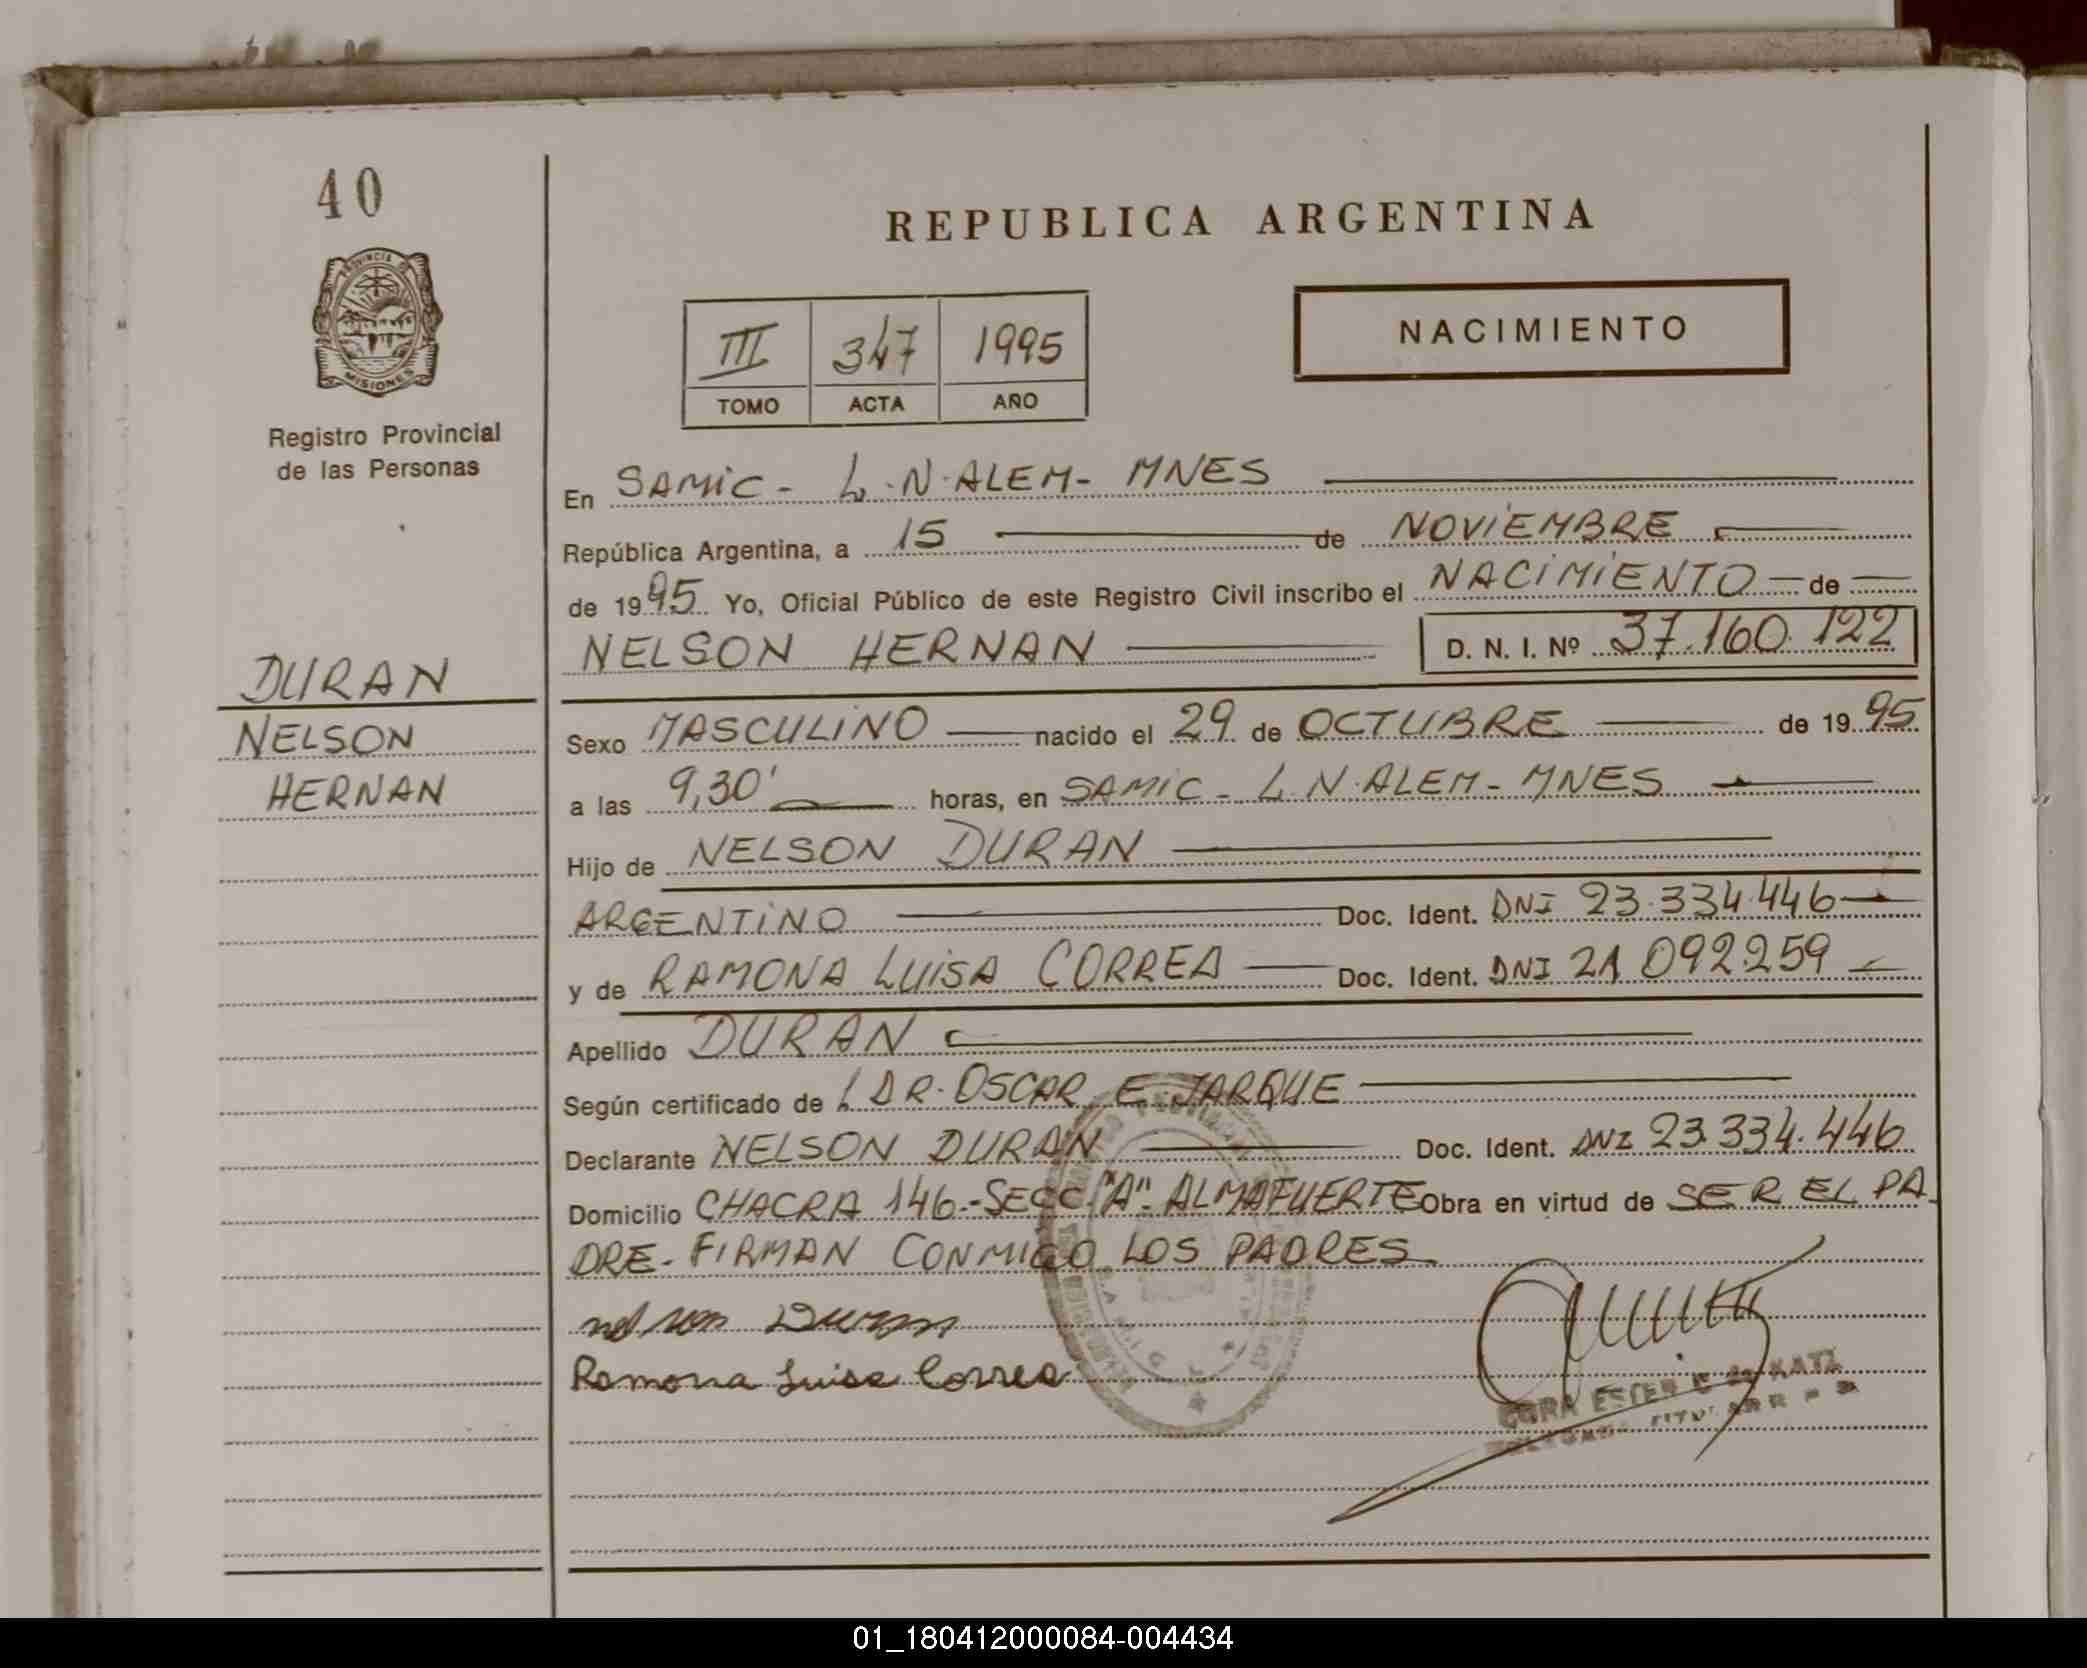 40
REPUBLICA ARGENTINA
PROVINCIA DE
MISIONES
III 347 1995
TOMO ACTA AÑO
NACIMIENTO
Registro Provincial
de las Personas
En SAMIC - L.N.ALEM- MNES
República Argentina, a 15 de NOVIEMBRE
de 1995 Yo, Oficial Público de este Registro Civil inscribo el NACIMIENTO de
NELSON HERNAN D. N. I. Nº 37.160.122
DURAN
NELSON
HERNAN
Sexo MASCULINO nacido el 29 de OCTUBRE de 1995
a las 9,30' horas, en SAMIC - L.N.ALEM - MNES
Hijo de NELSON DURAN
ARGENTINO Doc. Ident. DNI 23.334.446
y de RAMONA LUISA CORREA Doc. Ident. DNI 21.092.259
Apellido DURAN
Según certificado de DR. OSCAR E. JARQUE
Declarante NELSON DURAN Doc. Ident. DNI 23.334.446
Domicilio CHACRA 146.-SECC."A"- ALMAFUERTE Obra en virtud de SER EL PA-
DRE- FIRMAN CONMIGO LOS PADRES
nelson Duran
Ramona Luisa Correa
ESTER KATZ
TITULAR
01_180412000084-004434